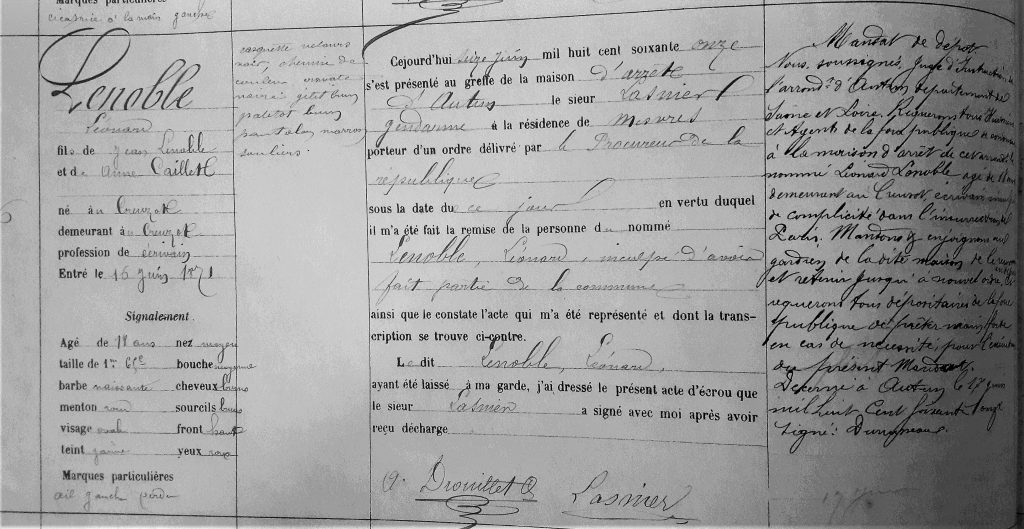 Marques particulières
cicatrice à la main gauche
Lenoble
Léonard
fils de Jean Lenoble
et de Anne Caillet
né au Creuzot
demeurant au Creuzot
profession de écrivain
Entré le 16 Juin 1871
Signalement.
Agé de 18 ans nez moyen
taille de 1m 65c bouche moyenne
barbe naissante cheveux bruns
menton rond sourcils bruns
visage ovale front haut
teint jaune yeux roux
Marques particulières
œil gauche perdu
casquette velours
noir, chemise de
couleur cravate
noire gilet brun
paletot brun
pantalon marron
souliers.
Cejourd'hui seize juin mil huit cent soixante onze
s'est présenté au greffe de la maison d'arrêt
d'Autun le sieur Lasnier
gendarme à la résidence de Mesvres
porteur d'un ordre délivré par le Procureur de la
république
sous la date du ce jour en vertu duquel
il m'a été fait la remise de la personne du nommé
Lenoble, Léonard, inculpé d'avoir
fait partie de la commune
ainsi que le constate l'acte qui m'a été représenté et dont la trans-
cription se trouve ci-contre.
Le dit Lenoble, Léonard,
ayant été laissé à ma garde, j'ai dressé le présent acte d'écrou que
le sieur Lasnier a signé avec moi après avoir
reçu décharge
Drouillet Lasnier
Mandat de dépôt
Nous, soussigné, Juge d'Instruction de
l'arrondt d'Autun département de
Saône et Loire, Requérons tous Huissiers
et Agents de la force publique de conduire
à la maison d'arrêt de cet arrondt le
nommé Léonard Lenoble agé de 18 ans
demeurant au Creusot, écrivain inculpé
de complicité dans l'insurrection de
Paris. Mandons & enjoignons aux
gardien de la dite maison de le recevoir
et retenir jusqu'à nouvel ordre,
requerons tous dépositaires de la force
publique de prêter main forte
en cas de nécessité, pour l'exécution
du présent Mandat.
Décerné à Autun le 17 juin
mil huit cent soixante onze
Signé: